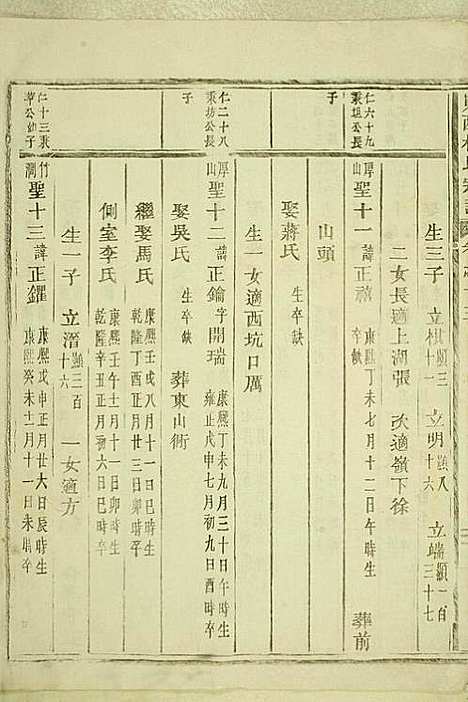 生三子 立棋顯三十一 立明顯八十六 立端顯一百三十七
二女長適上湖張 次適嶺下徐
仁六十九秉垣公長子
厚山 聖十一諱正禧 康熙丁未七月十二日午時生 卒缺 葬前
山頭
娶蔣氏 生卒缺
生一女適西坑口厲
仁二十八秉坊公長子
厚山 聖十二諱正鑰字開瑞 康熙丁未九月三十日午時生 雍正戊申七月初九日酉時卒
娶吳氏 生卒缺 葬東山衕
繼娶馬氏 康熙壬戌八月十一日巳時生 乾隆丁酉二月廿二日卯時卒
側室李氏 康熙壬午十月十一日卯時生 乾隆辛丑六月初六日巳時卒
生一子 立溍顯三百十六 一女適方
仁十三秉華公幼子
竹澗 聖十三諱正鑼 康熙戊申正月廿六日辰時生 康熙癸未十二月十一日未時卒